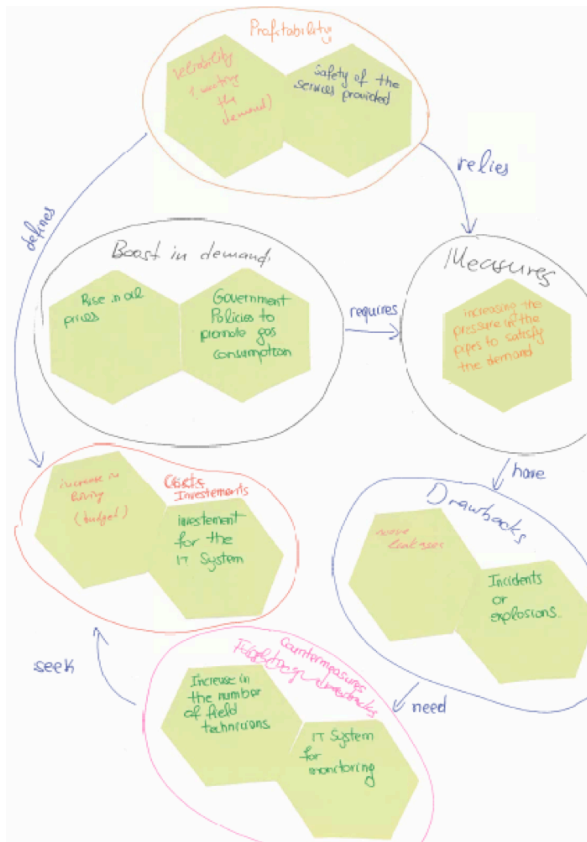 Profitability
reliability
(meeting
the
demand)
Safety of the
services provided
relies
defines
Boost in demand.
Rise in oil
prices
Government
Policies to
promote gas
consumption
requires
Measures
increasing the
pressure in the
pipes to satisfy
the demand
have
Costs
Investements
increase in
hiring
(budget)
Investement
for the
IT System
Drawbacks
more
leakages
Incidents
or
explosions
need
seek
Countermeasures
drawbacks
Increase in
the number
of field
technicians
IT System
for
monitoring